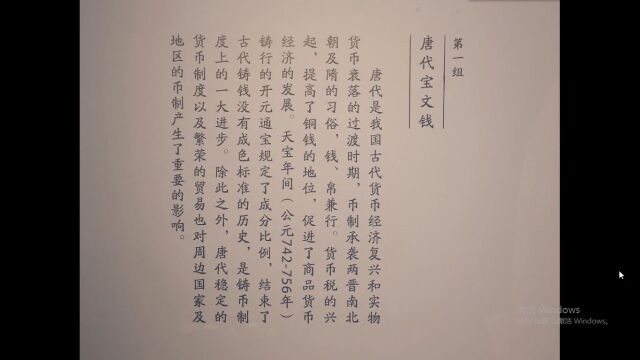 第一组
唐代宝文钱
唐代是我国古代货币经济复兴和实物
货币衰落的过渡时期，币制承袭两晋南北
朝及隋的习俗，钱、帛兼行。货币税的兴
起，提高了铜钱的地位，促进了商品货币
经济的发展。天宝年间（公元742-756年）
铸行的开元通宝规定了成分比例，结束了
古代铸钱没有成色标准的历史，是铸币制
度上的一大进步。除此之外，唐代稳定的
货币制度以及繁荣的贸易也对周边国家及
地区的币制产生了重要的影响。
Windows
Windows。